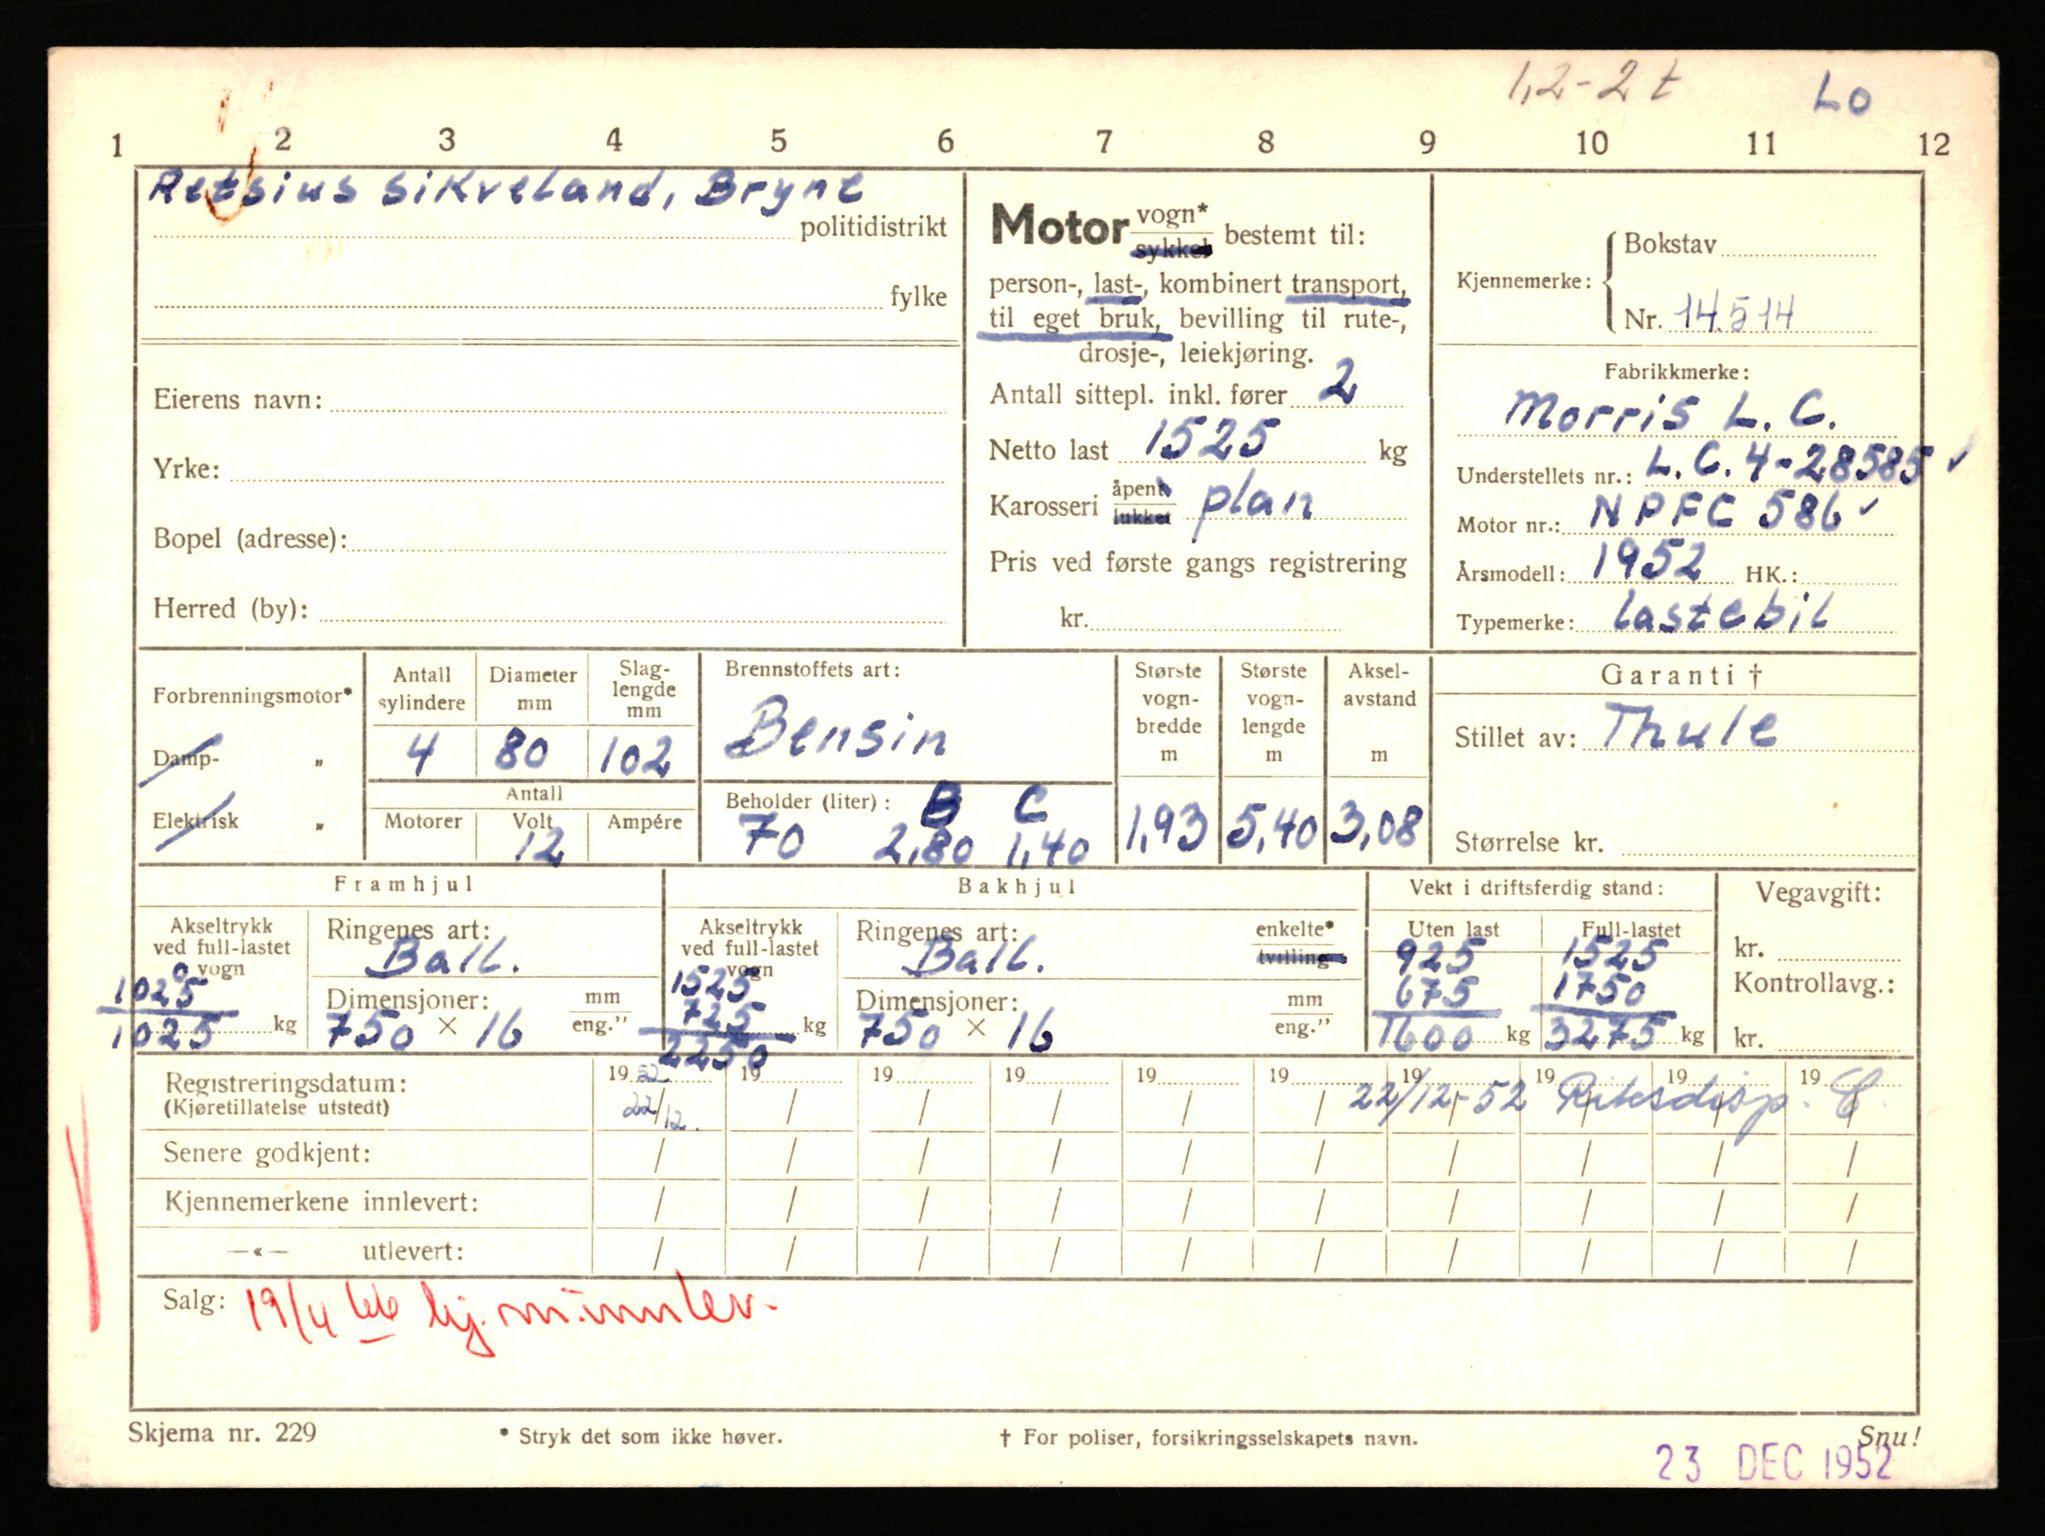 1,2-2 t Lo
1 2 3 4 5 6 7 8 9 10 11 12
Retsius Sikveland, Bryne
politidistrikt
fylke
Eierens navn:
Yrke:
Bopel (adresse):
Herred (by):
Motor vogn* sykkel bestemt til:
person-, last-, kombinert transport,
til eget bruk, bevilling til rute-,
drosje-, leiekjøring.
Antall sittepl. inkl. fører 2
Netto last 1525 kg
Karosseri åpent lukket plan
Pris ved første gangs registrering
kr.
Kjennemerke: Bokstav
Nr. 14514
Fabrikkmerke:
Morris L. C.
Understellets nr.: L.C.4-28585 ✓
Motor nr.: NPFC 586 ✓
Årsmodell: 1952 HK.:
Typemerke: Lastebil
Forbrenningsmotor*
Damp- "
Elektrisk "
Antall sylindere 4
Diameter mm 80
Slaglengde mm 102
Antall
Motorer Volt 12 Ampére
Brennstoffets art:
Bensin
Beholder (liter): B C
70 2,80 1,40
Største vognbredde m 1,93
Største vognlengde m 5,40
Akselavstand m 3,08
Garanti †
Stillet av: Thule
Størrelse kr.
Framhjul
Akseltrykk ved full-lastet vogn
1025
1025 kg
Ringenes art:
Ball.
Dimensjoner: mm eng."
750 × 16
Bakhjul
Akseltrykk ved full-lastet vogn
1525
725 kg
2250
Ringenes art: enkelte* tvilling
Ball.
Dimensjoner: mm eng."
750 × 16
Vekt i driftsferdig stand:
Uten last Full-lastet
925 1525
675 1750
1600 kg 3275 kg
Vegavgift:
kr.
Kontrollavg.:
kr.
Registreringsdatum: 1952 19 19 19 19 19 19 19 19 19
(Kjøretillatelse utstedt) 22/12. 22/12-52 Riksdisp.
Senere godkjent:
Kjennemerkene innlevert:
—«— utlevert:
Salg: 19/4 66 kj.m. innlev.
Skjema nr. 229 * Stryk det som ikke høver. † For poliser, forsikringsselskapets navn. Snu!
23 DEC 1952